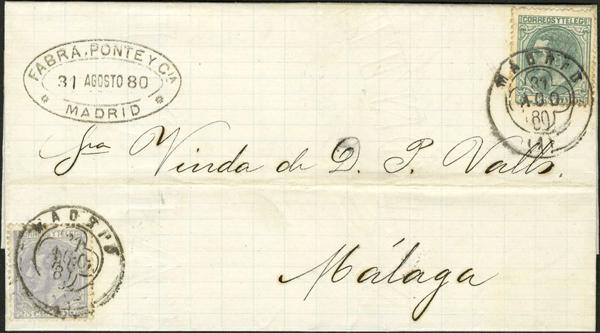 FABRA, PONTE Y CIA
31 AGOSTO 80
MADRID
CORREOS Y TELEGS
MADRID
31
AGO
80
(1)
Sra Viuda de D. P. Valls
Málaga
MADRID
31
AGO
80